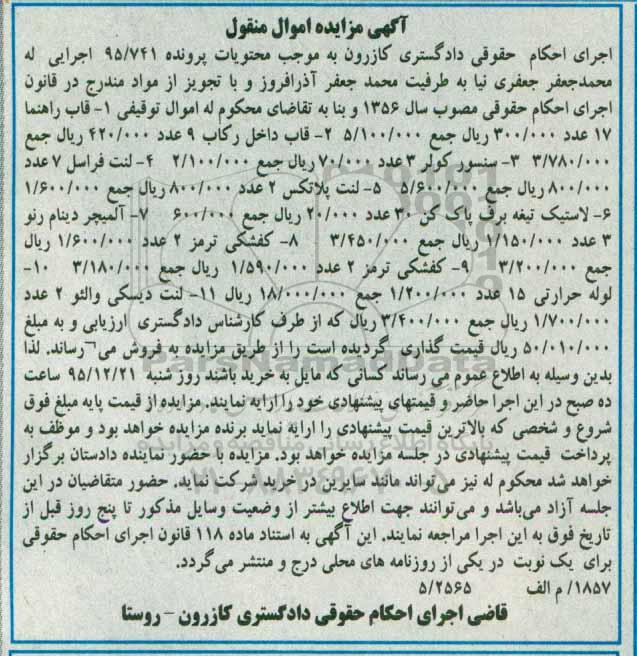 آگهی مزایده اموال منقول
اجرای احکام حقوقی دادگستری کازرون به موجب محتویات پرونده ۹۵/۷۴۱ اجرایی له
محمدجعفر جعفری نیا به طرفیت محمد جعفر آذرافروز و با تجویز از مواد مندرج در قانون
اجرای احکام حقوقی مصوب سال ۱۳۵۶ و بنا به تقاضای محکوم له اموال توقیفی ۱- قاب راهنما
۱۷ عدد ۳۰۰/۰۰۰ ریال جمع ۵/۱۰۰/۰۰۰ ۲- قاب داخل رکاب ۹ عدد ۴۲۰/۰۰۰ ریال جمع
۳/۷۸۰/۰۰۰ ۳- سنسور کولر ۳ عدد ۷۰/۰۰۰ ریال جمع ۲/۱۰۰/۰۰۰ ۴- لنت فراسل ۷ عدد
۸۰۰/۰۰۰ ریال جمع ۵/۶۰۰/۰۰۰ ۵- لنت پلاتکس ۲ عدد ۸۰۰/۰۰۰ ریال جمع ۱/۶۰۰/۰۰۰
۶- لاستیک تیغه برف پاک کن ۳۰ عدد ۲۰/۰۰۰ ریال جمع ۶۰۰/۰۰۰ ۷- آلمیچر دینام رنو
۳ عدد ۱/۱۵۰/۰۰۰ ریال جمع ۳/۴۵۰/۰۰۰ ۸- کفشکی ترمز ۲ عدد ۱/۶۰۰/۰۰۰ ریال
جمع ۳/۲۰۰/۰۰۰ ۹- کفشکی ترمز ۲ عدد ۱/۵۹۰/۰۰۰ ریال جمع ۳/۱۸۰/۰۰۰ ۱۰-
لوله حرارتی ۱۵ عدد ۱/۲۰۰/۰۰۰ جمع ۱۸/۰۰۰/۰۰۰ ریال ۱۱- لنت دیسکی والئو ۲ عدد
۱/۷۰۰/۰۰۰ ریال جمع ۳/۴۰۰/۰۰۰ ریال که از طرف کارشناس دادگستری ارزیابی و به مبلغ
۵۰/۰۱۰/۰۰۰ ریال قیمت گذاری گردیده است را از طریق مزایده به فروش می¬رساند. لذا
بدین وسیله به اطلاع عموم می رساند کسانی که مایل به خرید باشند روز شنبه ۹۵/۱۲/۲۱ ساعت
ده صبح در این اجرا حاضر و قیمتهای پیشنهادی خود را ارایه نمایند. مزایده از قیمت پایه مبلغ فوق
شروع و شخصی که بالاترین قیمت پیشنهادی را ارائه نماید برنده مزایده خواهد بود و موظف به
پرداخت قیمت پیشنهادی در جلسه مزایده خواهد بود. مزایده با حضور نماینده دادستان برگزار
خواهد شد محکوم له نیز می تواند مانند سایرین در خرید شرکت نماید. حضور متقاضیان در این
جلسه آزاد می‌باشد و می‌توانند جهت اطلاع بیشتر از وضعیت وسایل مذکور تا پنج روز قبل از
تاریخ فوق به این اجرا مراجعه نمایند. این آگهی به استناد ماده ۱۱۸ قانون اجرای احکام حقوقی
برای یک نوبت در یکی از روزنامه های محلی درج و منتشر می گردد.
۱۸۵۷/ م الف ۵/۲۵۶۵
قاضی اجرای احکام حقوقی دادگستری کازرون - روستا